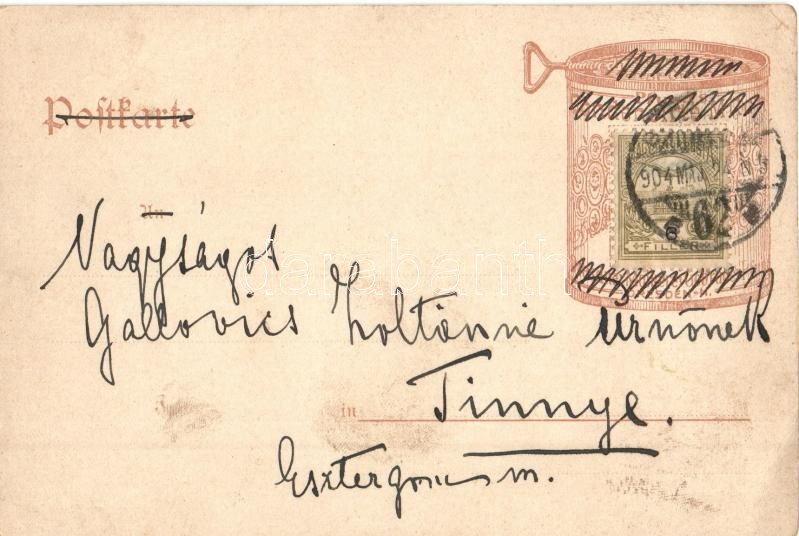 Postkarte
904 MAJ
62
6
FILLÉR
An
Nagyságos
Gallovics Zoltánné úrnőnek
in Tinnye.
Esztergom m.
darabanth